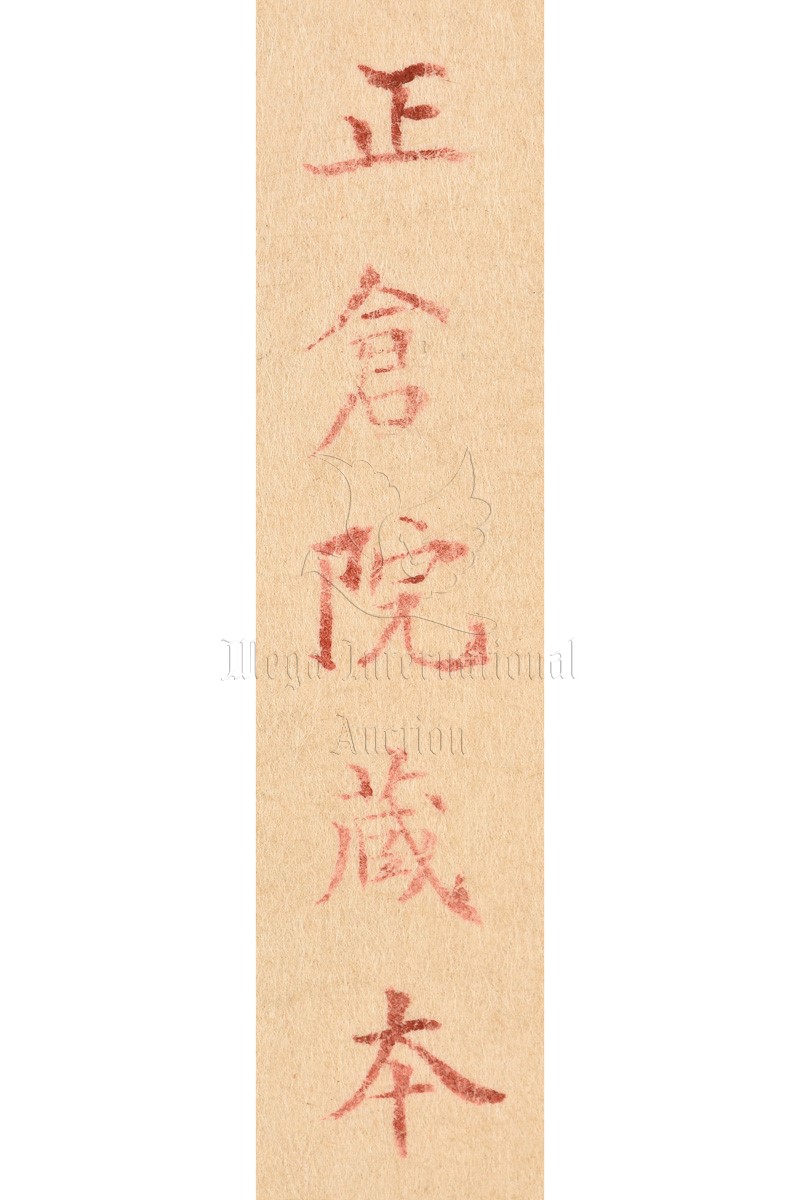 正倉院蔵本
Mega International
Auction